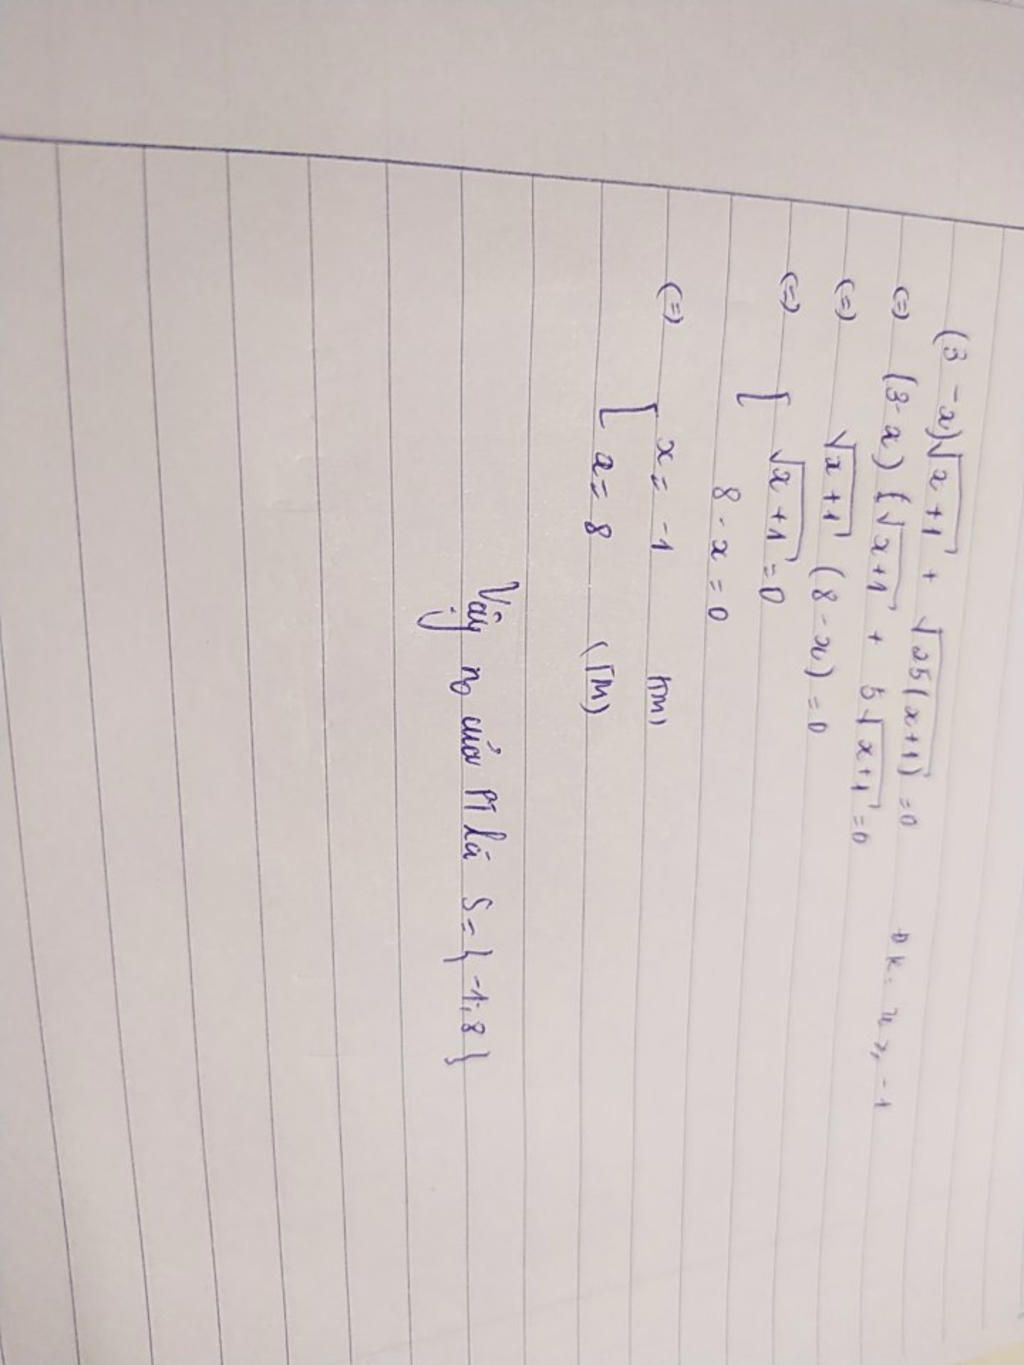 (3 - x)√x+1 + √25(x+1) = 0 ĐK: x ≥ -1
(=) (3-x)(√x+1 + 5√x+1 = 0
(=) √x+1 (8 - x) = 0
(=) [ √x+1 = 0
8 - x = 0
(=) [ x = -1 (TM)
x = 8 (TM)
Vậy no của PT là S = { -1; 8 }